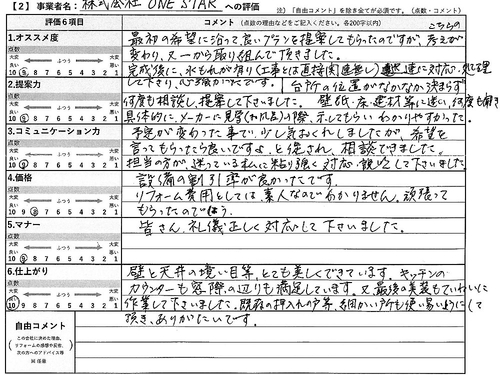 【2】事業者名：株式会社 ONE STAR への評価
（注）「自由コメント」を除き全てが必須です。（点数・コメント）
評価6項目
コメント（点数の理由などをご記入ください。各200字以内）
こちらの
1.オススメ度
点数
大変良い ふつう 大変悪い
10 9 8 7 6 5 4 3 2 1
最初の希望に沿って良いプランを提案してもらったのですが、考えが
変わり、又一から取り組んで頂きました。
完成後に、水もれが有り（工事とは直接関連無し）迅速に対応・処理
して下さり、心強かったです。
2.提案力
点数
大変良い ふつう 大変悪い
10 9 8 7 6 5 4 3 2 1
台所の位置がなかなか決まらず
何度も相談し、提案して下さいました。壁紙・床・建材等に迷い、何度も
具体的に、メーカーに見学の際、示してもらいわかりやすかった。
3.コミュニケーション力
点数
大変良い ふつう 大変悪い
10 9 8 7 6 5 4 3 2 1
予定が変わった事で、少し気おくれしましたが、希望を
言ってもらったら良いですよ、と促され、相談できました。
担当の方が、迷っている私に粘り強く対応・説明して下さいました
4.価格
点数
大変良い ふつう 大変悪い
10 9 8 7 6 5 4 3 2 1
設備の割引率が良かったです。
リフォーム費用としては素人なのでわかりません。頑張って
もらったのでは？
5.マナー
点数
大変良い ふつう 大変悪い
10 9 8 7 6 5 4 3 2 1
皆さん、礼儀正しく対応して下さいました。
6.仕上がり
点数
大変良い ふつう 大変悪い
10 9 8 7 6 5 4 3 2 1
壁と天井の境い目等、とても美しくできています。キッチンの
カウンターも窓際の辺りも満足しています。又、最後の美装もていねいに
作業して下さいました。既存の押入れや戸等、細かい所も使い易いように
頂き、ありがたいです。
自由コメント
（この会社に決めた理由、リフォームの感想や反省、次の方へのアドバイス等
※任意